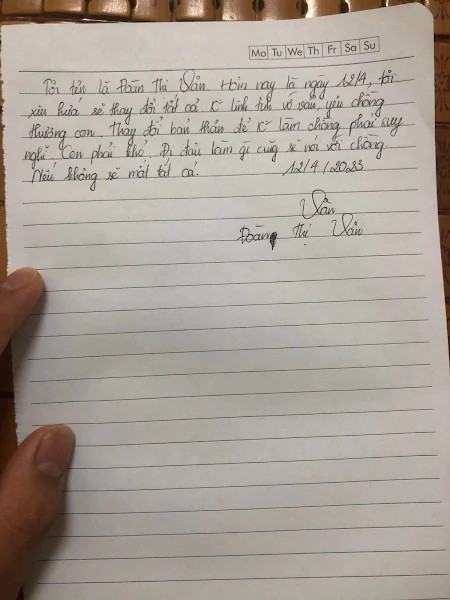 Mo Tu We Th Fr Sa Su
Tôi tên là Đoàn Thị Vân Hôm nay là ngày 12/4, tôi
xin hứa sẽ thay đổi tất cả K linh tinh vớ vẩn, yêu chồng
thương con. Thay đổi bản thân để K làm chồng phải suy
nghĩ. Con phải khổ. Đi đâu làm gì cũg sẽ nói với chồng
Nếu không sẽ mất tất cả.
12/4/2023
Vân
Đoàn Thị Vân